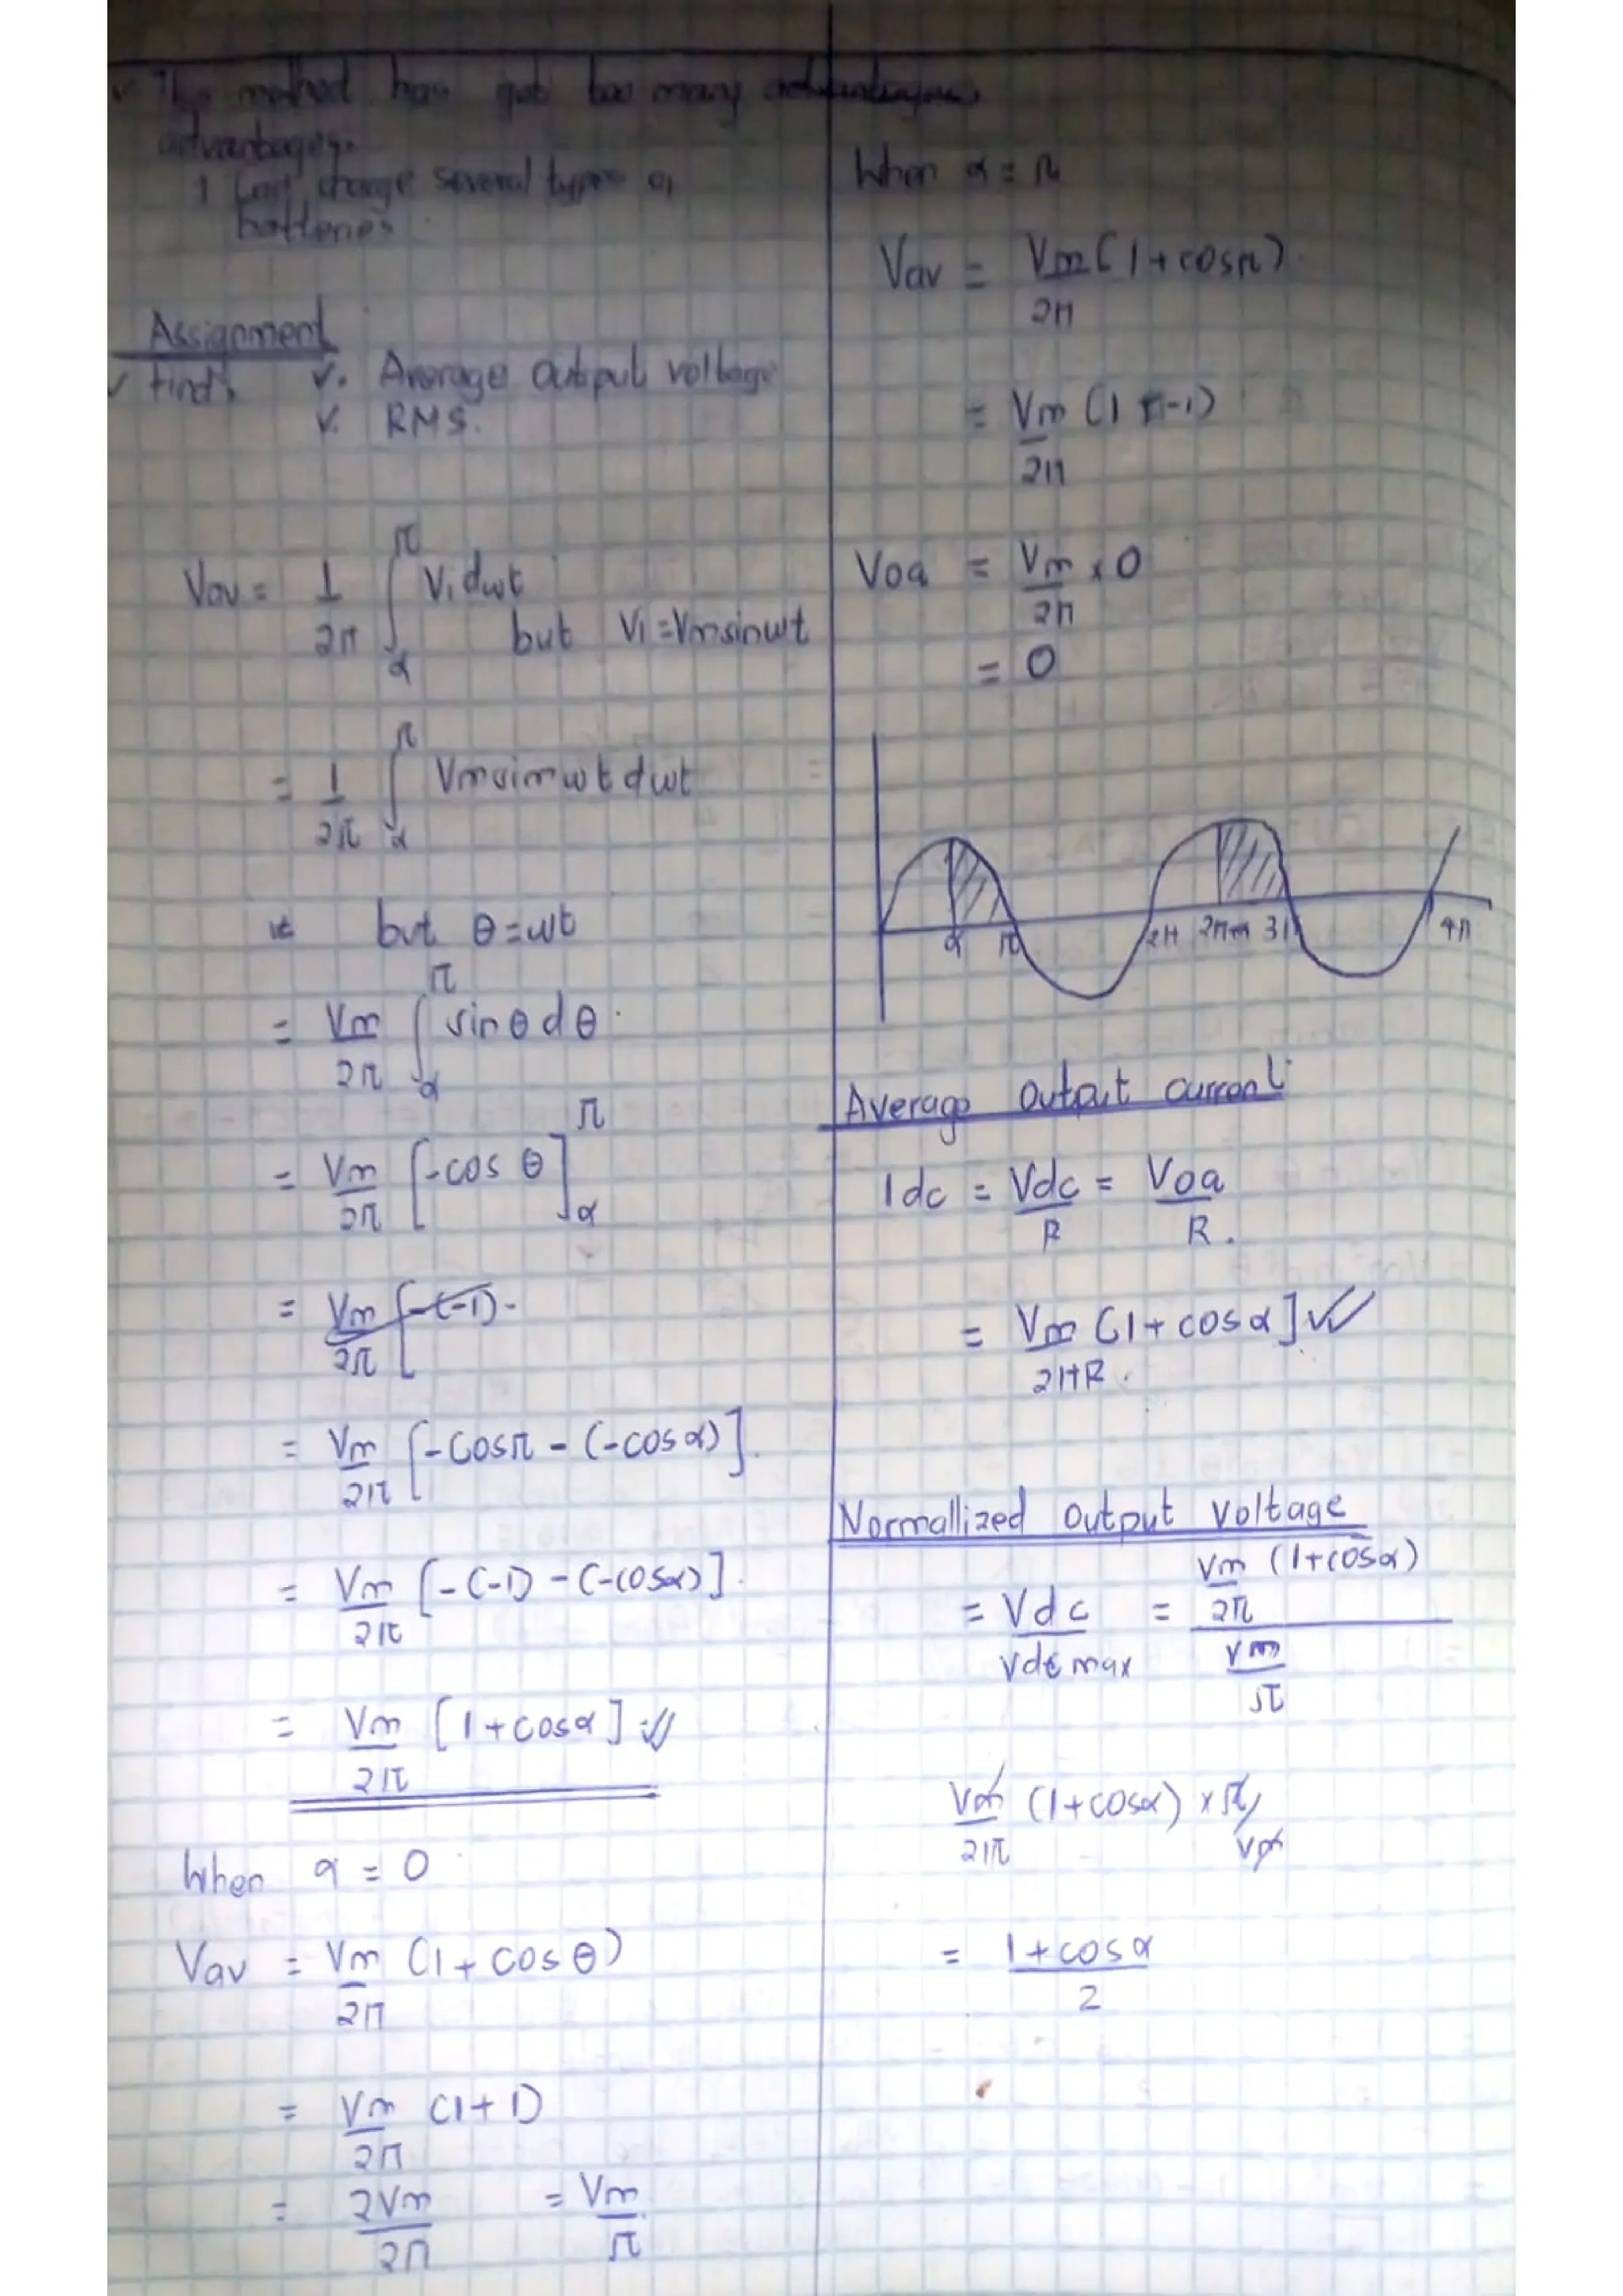 This method has got too many advantages
advantages.
1 Can charge several types of
batteries
Assignment
✓ Find; ✓. Average Output voltage
✓. RMS.
Vav = 1/2π ∫α^π Vi dwt
but Vi = Vmsinwt
= 1/2π ∫α^π Vmsinwt dwt
but θ = wt
= Vm/2π ∫α^π sinθdθ
= Vm/2π [-cos θ]α^π
= Vm/2π [-(-1)-
= Vm/2π [-Cosπ - (-cosα)]
= Vm/2π [-(-1) - (-cosα)]
= Vm/2π [1+cosα]
When α = 0
Vav = Vm/2π (1+ cos θ)
= Vm/2π (1+1)
= 2Vm/2π = Vm/π
When α = π
Vav = Vm/2π (1+cosπ)
= Vm/2π (1 + -1)
Voa = Vm/2π x 0
= 0
α π 2π 2π+α 3π 4π
Average Output current
Idc = Vdc/R = Voa/R.
= Vm/2πR (1+ cosα]
Normallized Output Voltage
= Vdc/Vdcmax = Vm/2π (1+cosα) / Vm/π
Vm/2π (1+cosα) x π/Vm
= 1+cosα/2